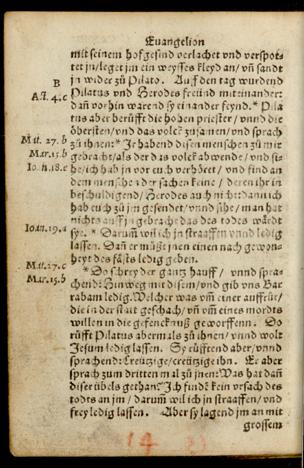 Euangelion
mit seinem hofgesind verlachet vnd verspot-
tet jn/ leget jm ein weysses kleyd an/ vñ sandt
jn wider zů Pilato. Auff den tag wurdend
B
Pilatus vnd Herodes freünd miteinander:
Act. 4. c
dañ vorhin warend sy einander feynd. * Pila
tus aber berůfft die hohen priester/ vnnd die
öbersten/ vnd das volck zusamen/ vnd sprach
Mat. 27. b
zů jhnen: * Ir habend disen menschen zů mir
Mar. 15. b
gebracht/ als der das volck abwende/ vnd si-
Ioan. 18. e
he/ ich hab jn vor euch verhöret/ vnd find an
dem menschen der sachen keine/ deren jhr jn
beschuldigend/ Herodes auch nicht: dann ich
hab euch zů jm gesendet/ vnnd sihe/ man hat
nichts auff jn gebracht das des todes wärdt
Ioan. 19. a
sye. * Darum̃ wil ich jn straaffen vnnd ledig
lassen. Dañ er můßt jnen einen nach gewon-
heyt des fästs ledig geben.
Mat. 27. c
* Do schrey der gantz hauff/ vnnd spra-
Mar. 15. b
chend: Hinweg mit disem/ vnd gib vns Bar
rabam ledig. Welcher was vm̃ einer auffrůr/
die in der statt geschach/ vñ vm̃ eines mordts
willen in die gefencknuß geworffenn. Do
růfft Pilatus abermals zů jhnen/ vnnd wolt
Jesum ledig lassen. Sy růfftend aber/ vnnd
sprachend: Creützige/ creützige jhn. Er aber
sprach zum dritten mal zů jnen: Was hat dañ
diser übels gethan? Ich findē kein vrsach des
todts an jm/ darum̃ wil ich jn straaffen/ vnd
frey ledig lassen. Aber sy lagend jm an mit
grossem